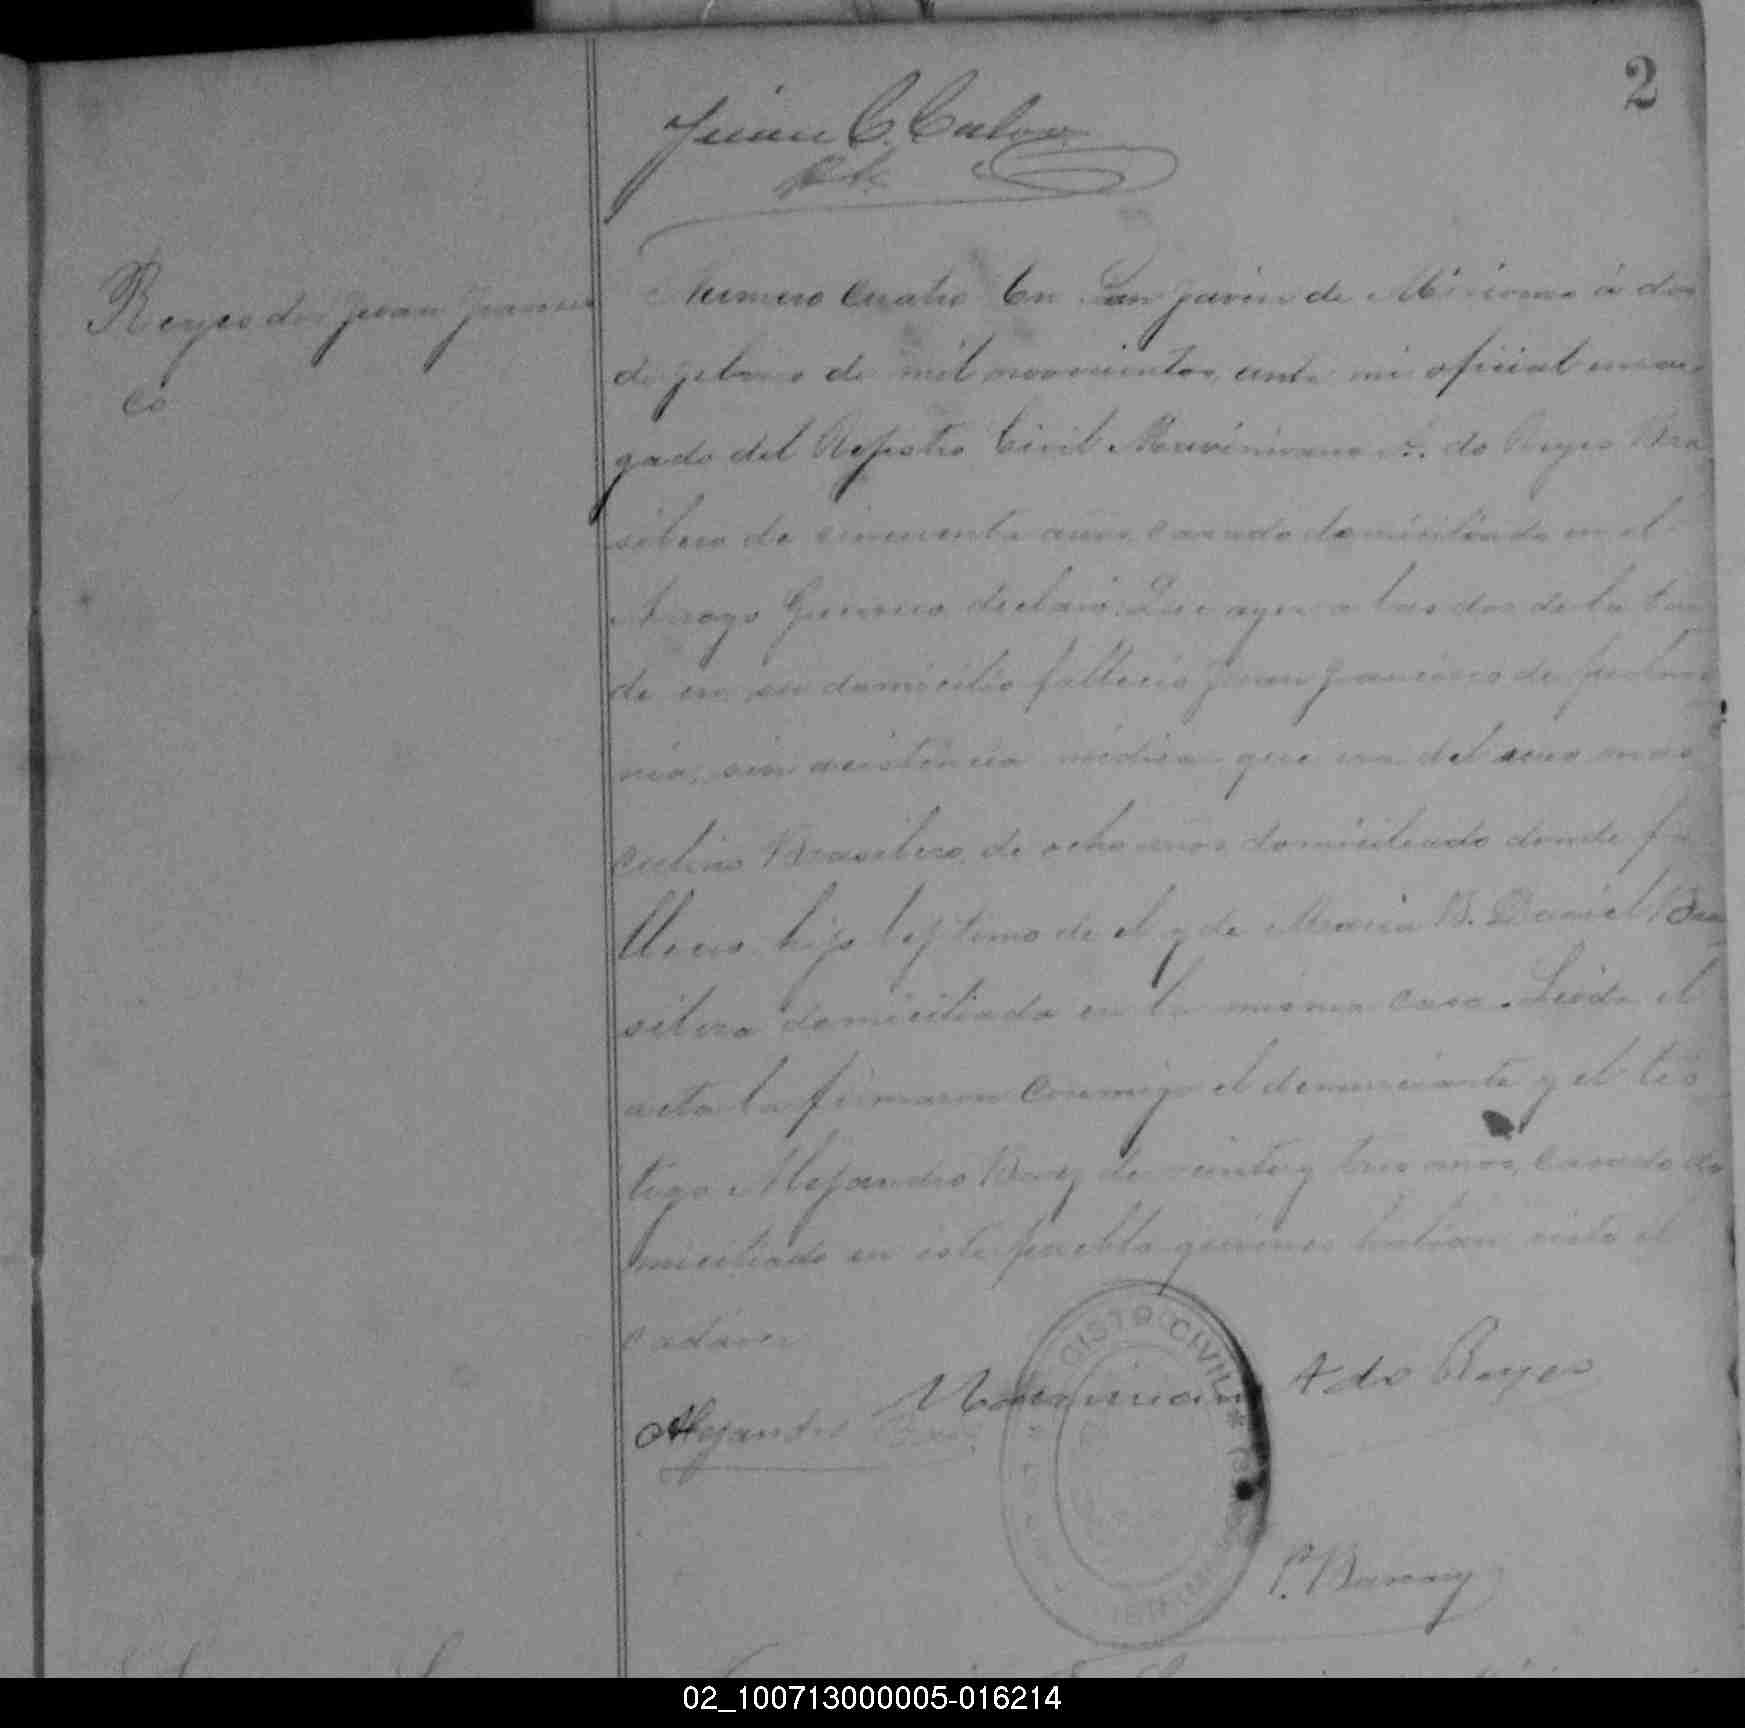 2
Juan C. Calvo
Reyes dos Juan Francis
co
Numero cuatro En San Javier de Misiones á dos
de febrero de mil novecientos, ante mi oficial encar
gado del Rejistro Civil Maximiano A. do Reyes Bra
silero de cincuenta años, casado domiciliado en el
Arroyo Guerrero declaró: Que ayer a las dos de la tar
de en su domicilio fallecio Juan Francisco de pulmo
nia, sin asistencia médica que era del sexo mas
culino Brasilero, de ocho años domiciliado donde fa
llecio hijo lejitimo de el y de Maria B. Daniel, Bra
silera domiciliada en la misma casa. Leida el
acta la firmaron conmigo el denunciante y el tes
tigo Alejandro Baez de veinte y tres años, casado do
miciliado en este pueblo quienes habian visto el
cadaver
Maximiano A do Reyes
Alejandro Baez
GISTRO CIVIL *